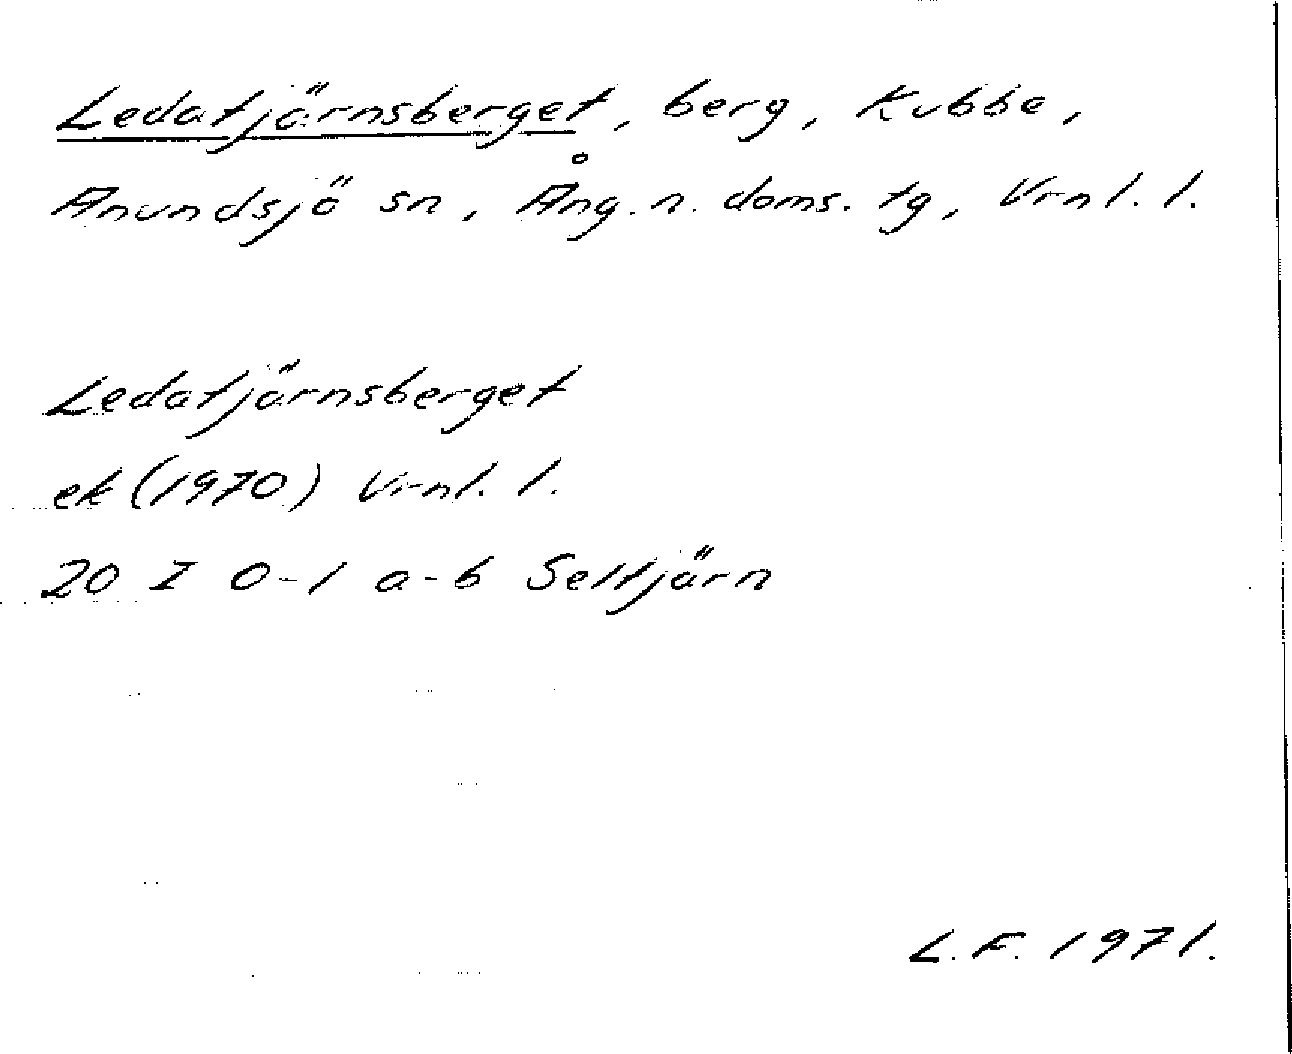 Ledatjärnsberget, berg, Kubbe,
Anundsjö sn, Ång. n. doms. tg, Vrnl. l.
Ledatjärnsberget
ek (1970) Vrnl. l.
20 I 0-1 a-b Seltjärn
L. F. 1971.